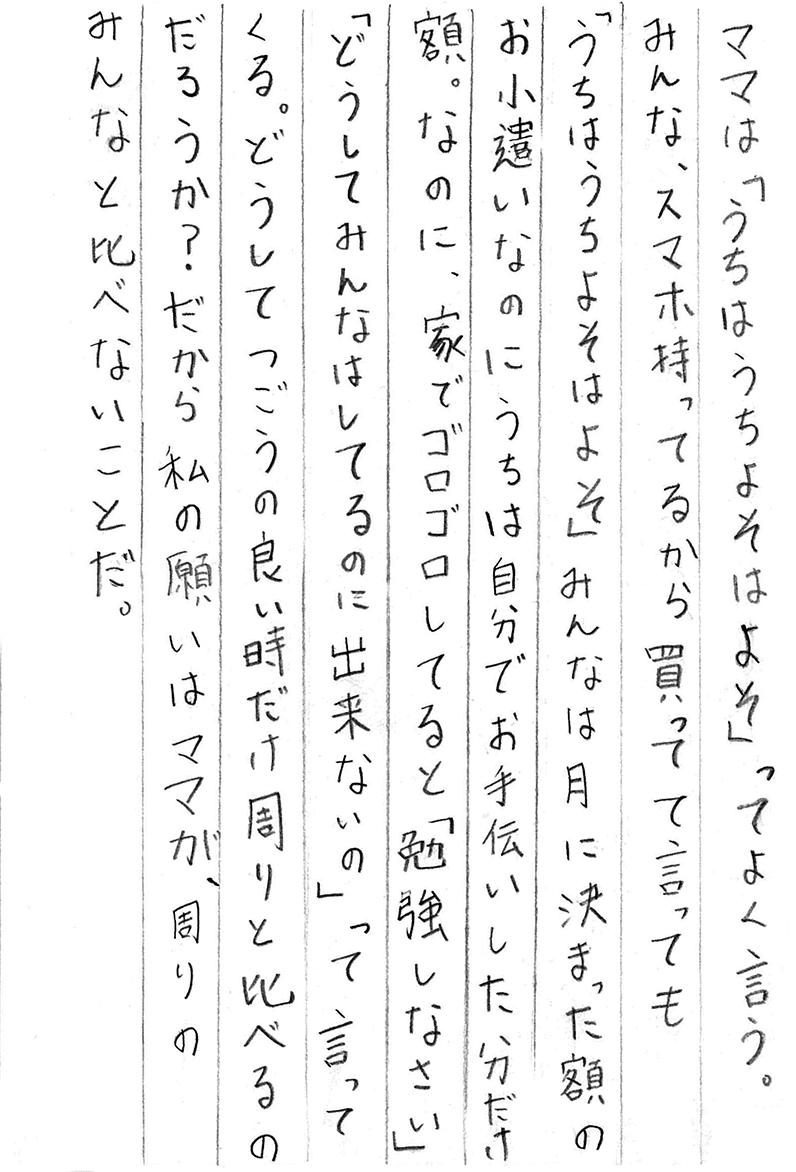 ママは「うちはうちよそはよそ」ってよく言う。
みんな、スマホ持ってるから買ってて言っても
「うちはうちよそはよそ」みんなは月に決まった額の
お小遣いなのにうちは自分でお手伝いした分だけ
額。なのに、家でゴロゴロしてると「勉強しなさい」
「どうしてみんなはしてるのに出来ないの」って言って
くる。どうしてつごうの良い時だけ周りと比べるの
だろうか？だから私の願いはママが、周りの
みんなと比べないことだ。